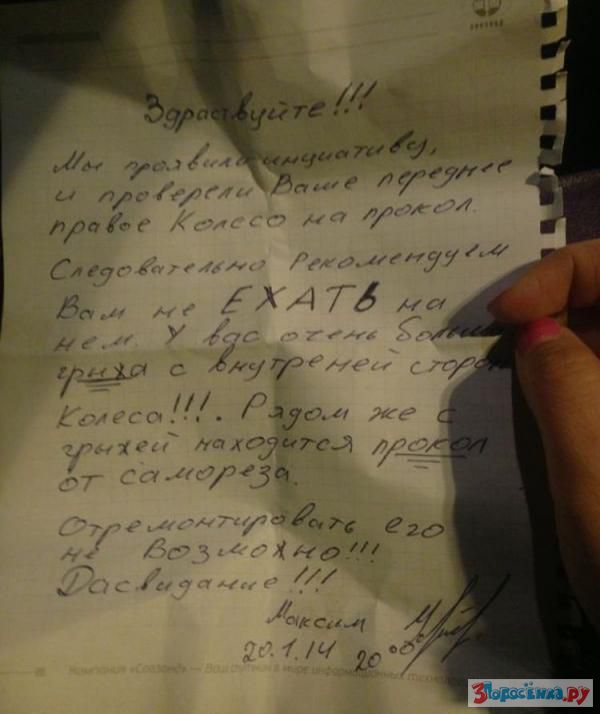 Здраствуйте!!!
Мы проявили инциативу,
и проверели Ваше переднее
правое Колесо на прокол.
Следовательно рекомендуем
Вам не ЕХАТЬ на
нем. У вас очень
грыха с внутреней
Колеса!!!. Рядом же с
грыхей находится прокол
от самореза.
Отремонтировать его
не возможно!!!
Дасвидание!!!
Максим
20.1.14 20⁰⁰
Компания «Совзонд» — Ваш спутник в мире информационных
3Поросёнка.ру